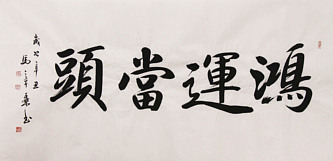 鴻運當頭
歲次辛丑
馬